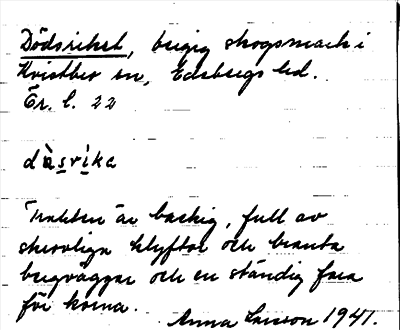 Dödsriket, bergig skogsmark i
Kvistbro sn, Edsbergs hd.
Ör. l. 22
dàsrìke
Trakten är backig, full av
skrovliga klyftor och branta
bergväggar och en ständig fara
för korna.
Anna Larsson 1941.